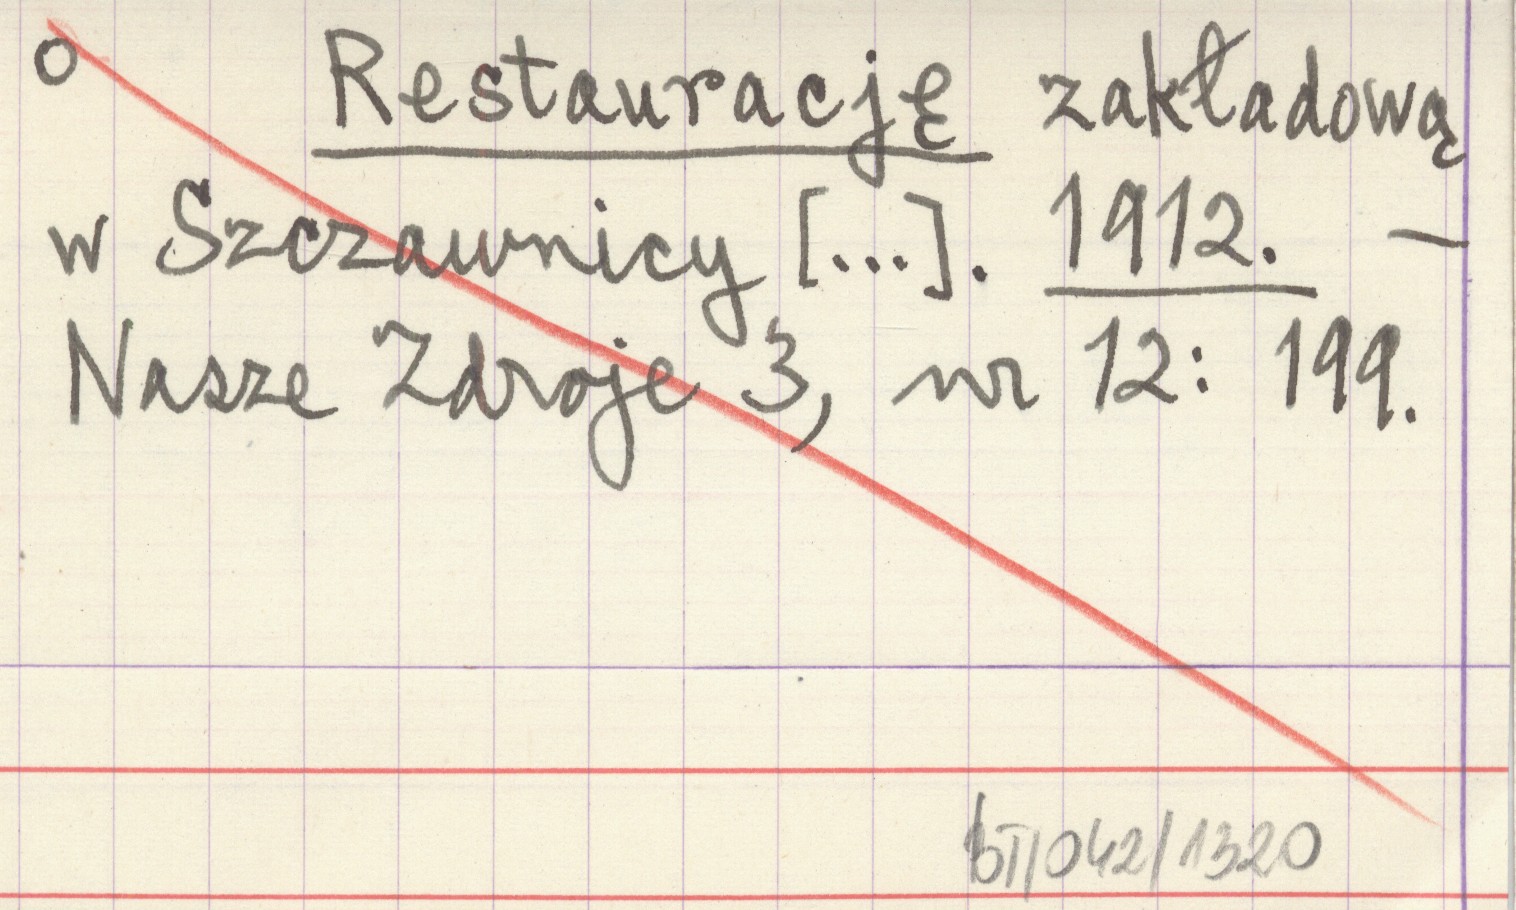 o Restaurację zakładową
w Szczawnicy [...]. 1912. —
Nasze Zdroje 3, nr 12: 199.
bT/042/1320